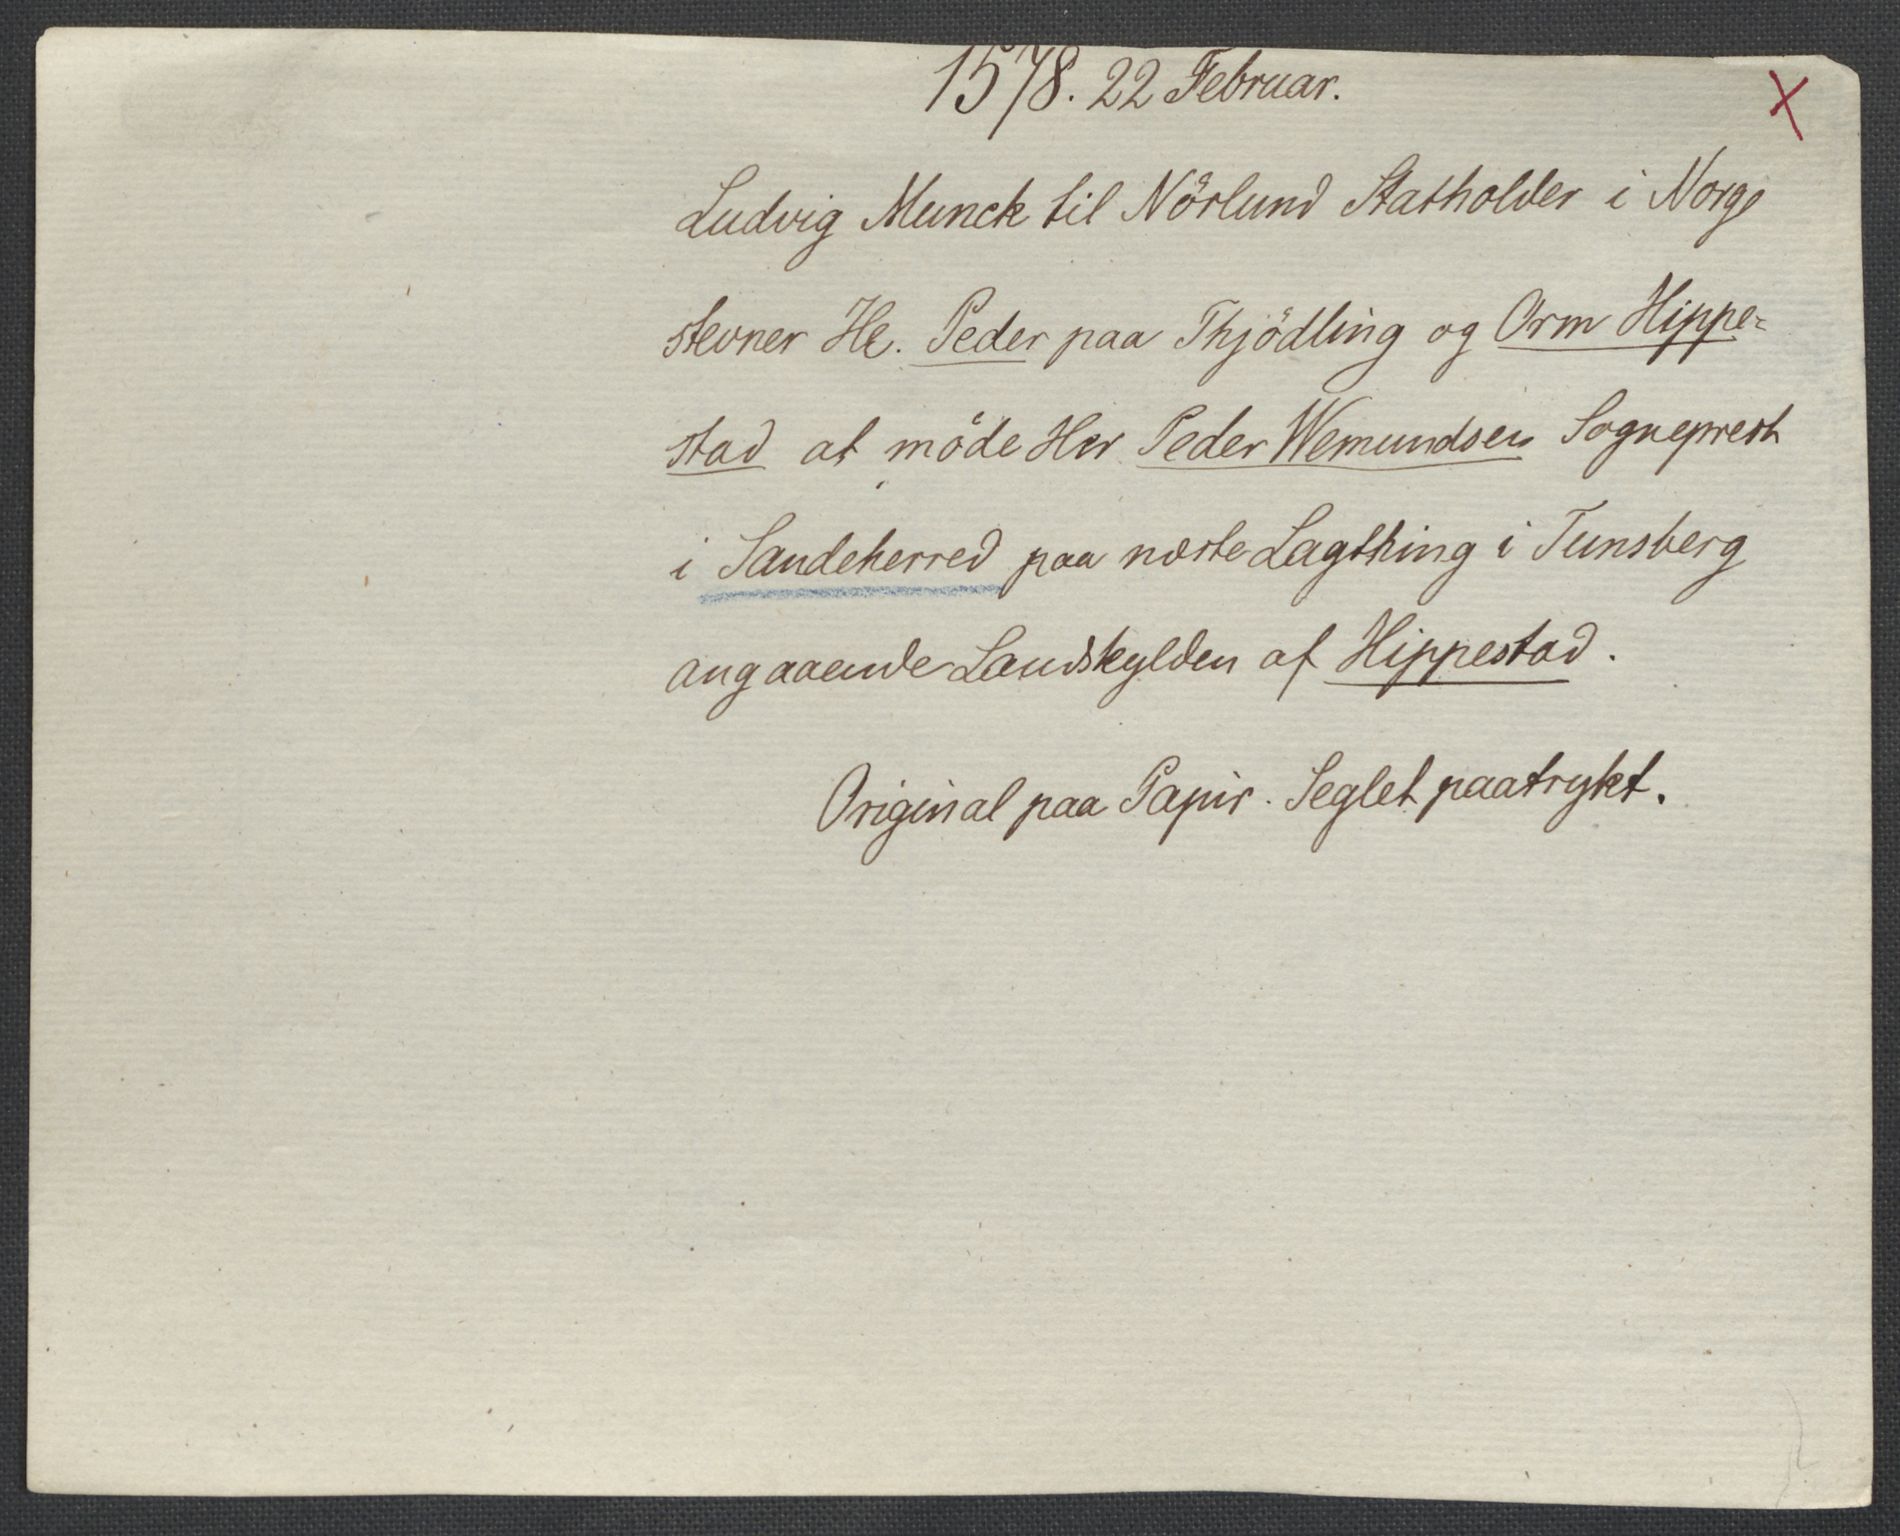 1578. 22 Februar.
X
Ludvig Munck til Nörlund Statholder i Norge
stevner Hr. Peder paa Thjödling og Orm Hippe-
stad at möde Her Peder Wemundsen Sogneprest
i Sandeherred paa næste Lagthing i Tunsberg
angaaende Landskylden af Hippestad.
Original paa Papir. Seglet paatrykt.